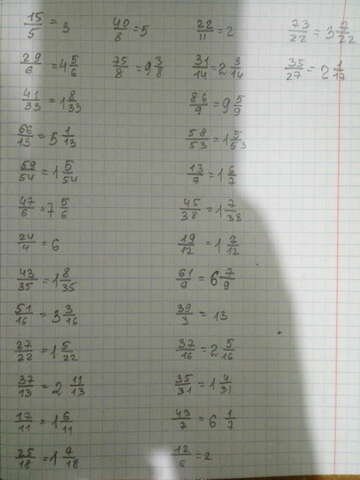 15/5 = 3 40/8 = 5 22/11 = 2 73/22 = 3 7/22
29/6 = 4 5/6 75/8 = 9 3/8 31/14 = 2 3/14 35/27 = 2 1/17
41/33 = 1 8/33 86/9 = 9 5/9
66/13 = 5 1/13 58/53 = 1 5/53
59/54 = 1 5/54 13/7 = 1 6/7
47/6 = 7 5/6 45/38 = 1 7/38
24/4 = 6 19/12 = 1 7/12
43/35 = 1 8/35 61/9 = 6 7/9
51/16 = 3 3/16 39/3 = 13
27/22 = 1 5/22 37/16 = 2 5/16
37/13 = 2 11/13 35/31 = 1 4/31
17/11 = 1 6/11 43/7 = 6 1/7
25/18 = 1 7/18 12/6 = 2